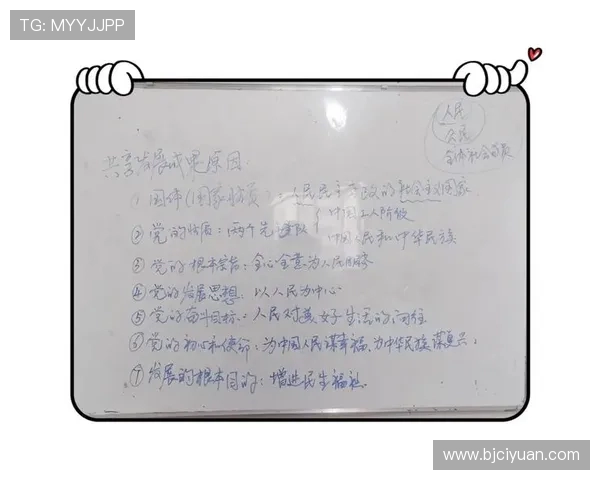 TG: MYYJJPP
人民
公民
全体社会成员
共享发展成果原因
① 国体(国家性质):人民民主专政的社会主义国家
② 党的性质:两个先锋队
中国工人阶级
中国人民和中华民族
③ 党的根本宗旨:全心全意为人民服务
④ 党的发展思想:以人民为中心
⑤ 党的奋斗目标:人民对美好生活的向往
⑥ 党的初心和使命:为中国人民谋幸福、为中华民族谋复兴
⑦ 发展的根本目的:增进民生福祉
www.bjciyuan.com